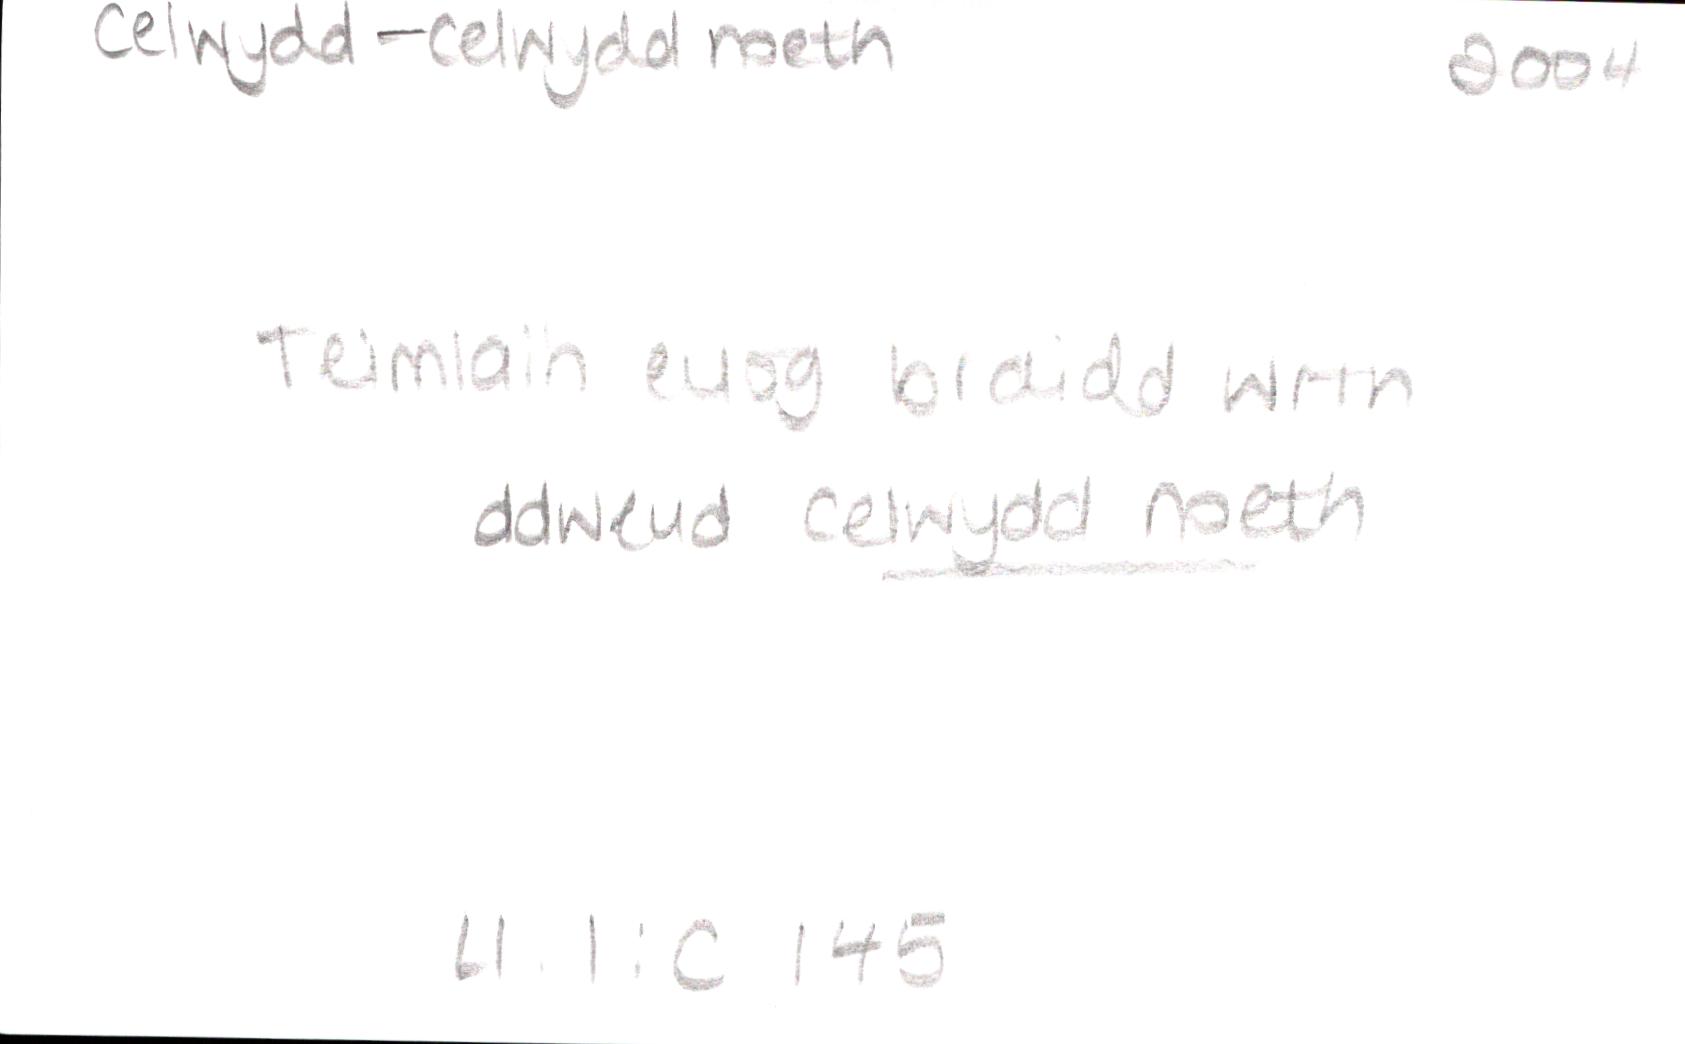 Celwydd – celwydd noeth 2004
Teimlain euog braidd wrth
ddweud celwydd noeth
Ll. I : C 145